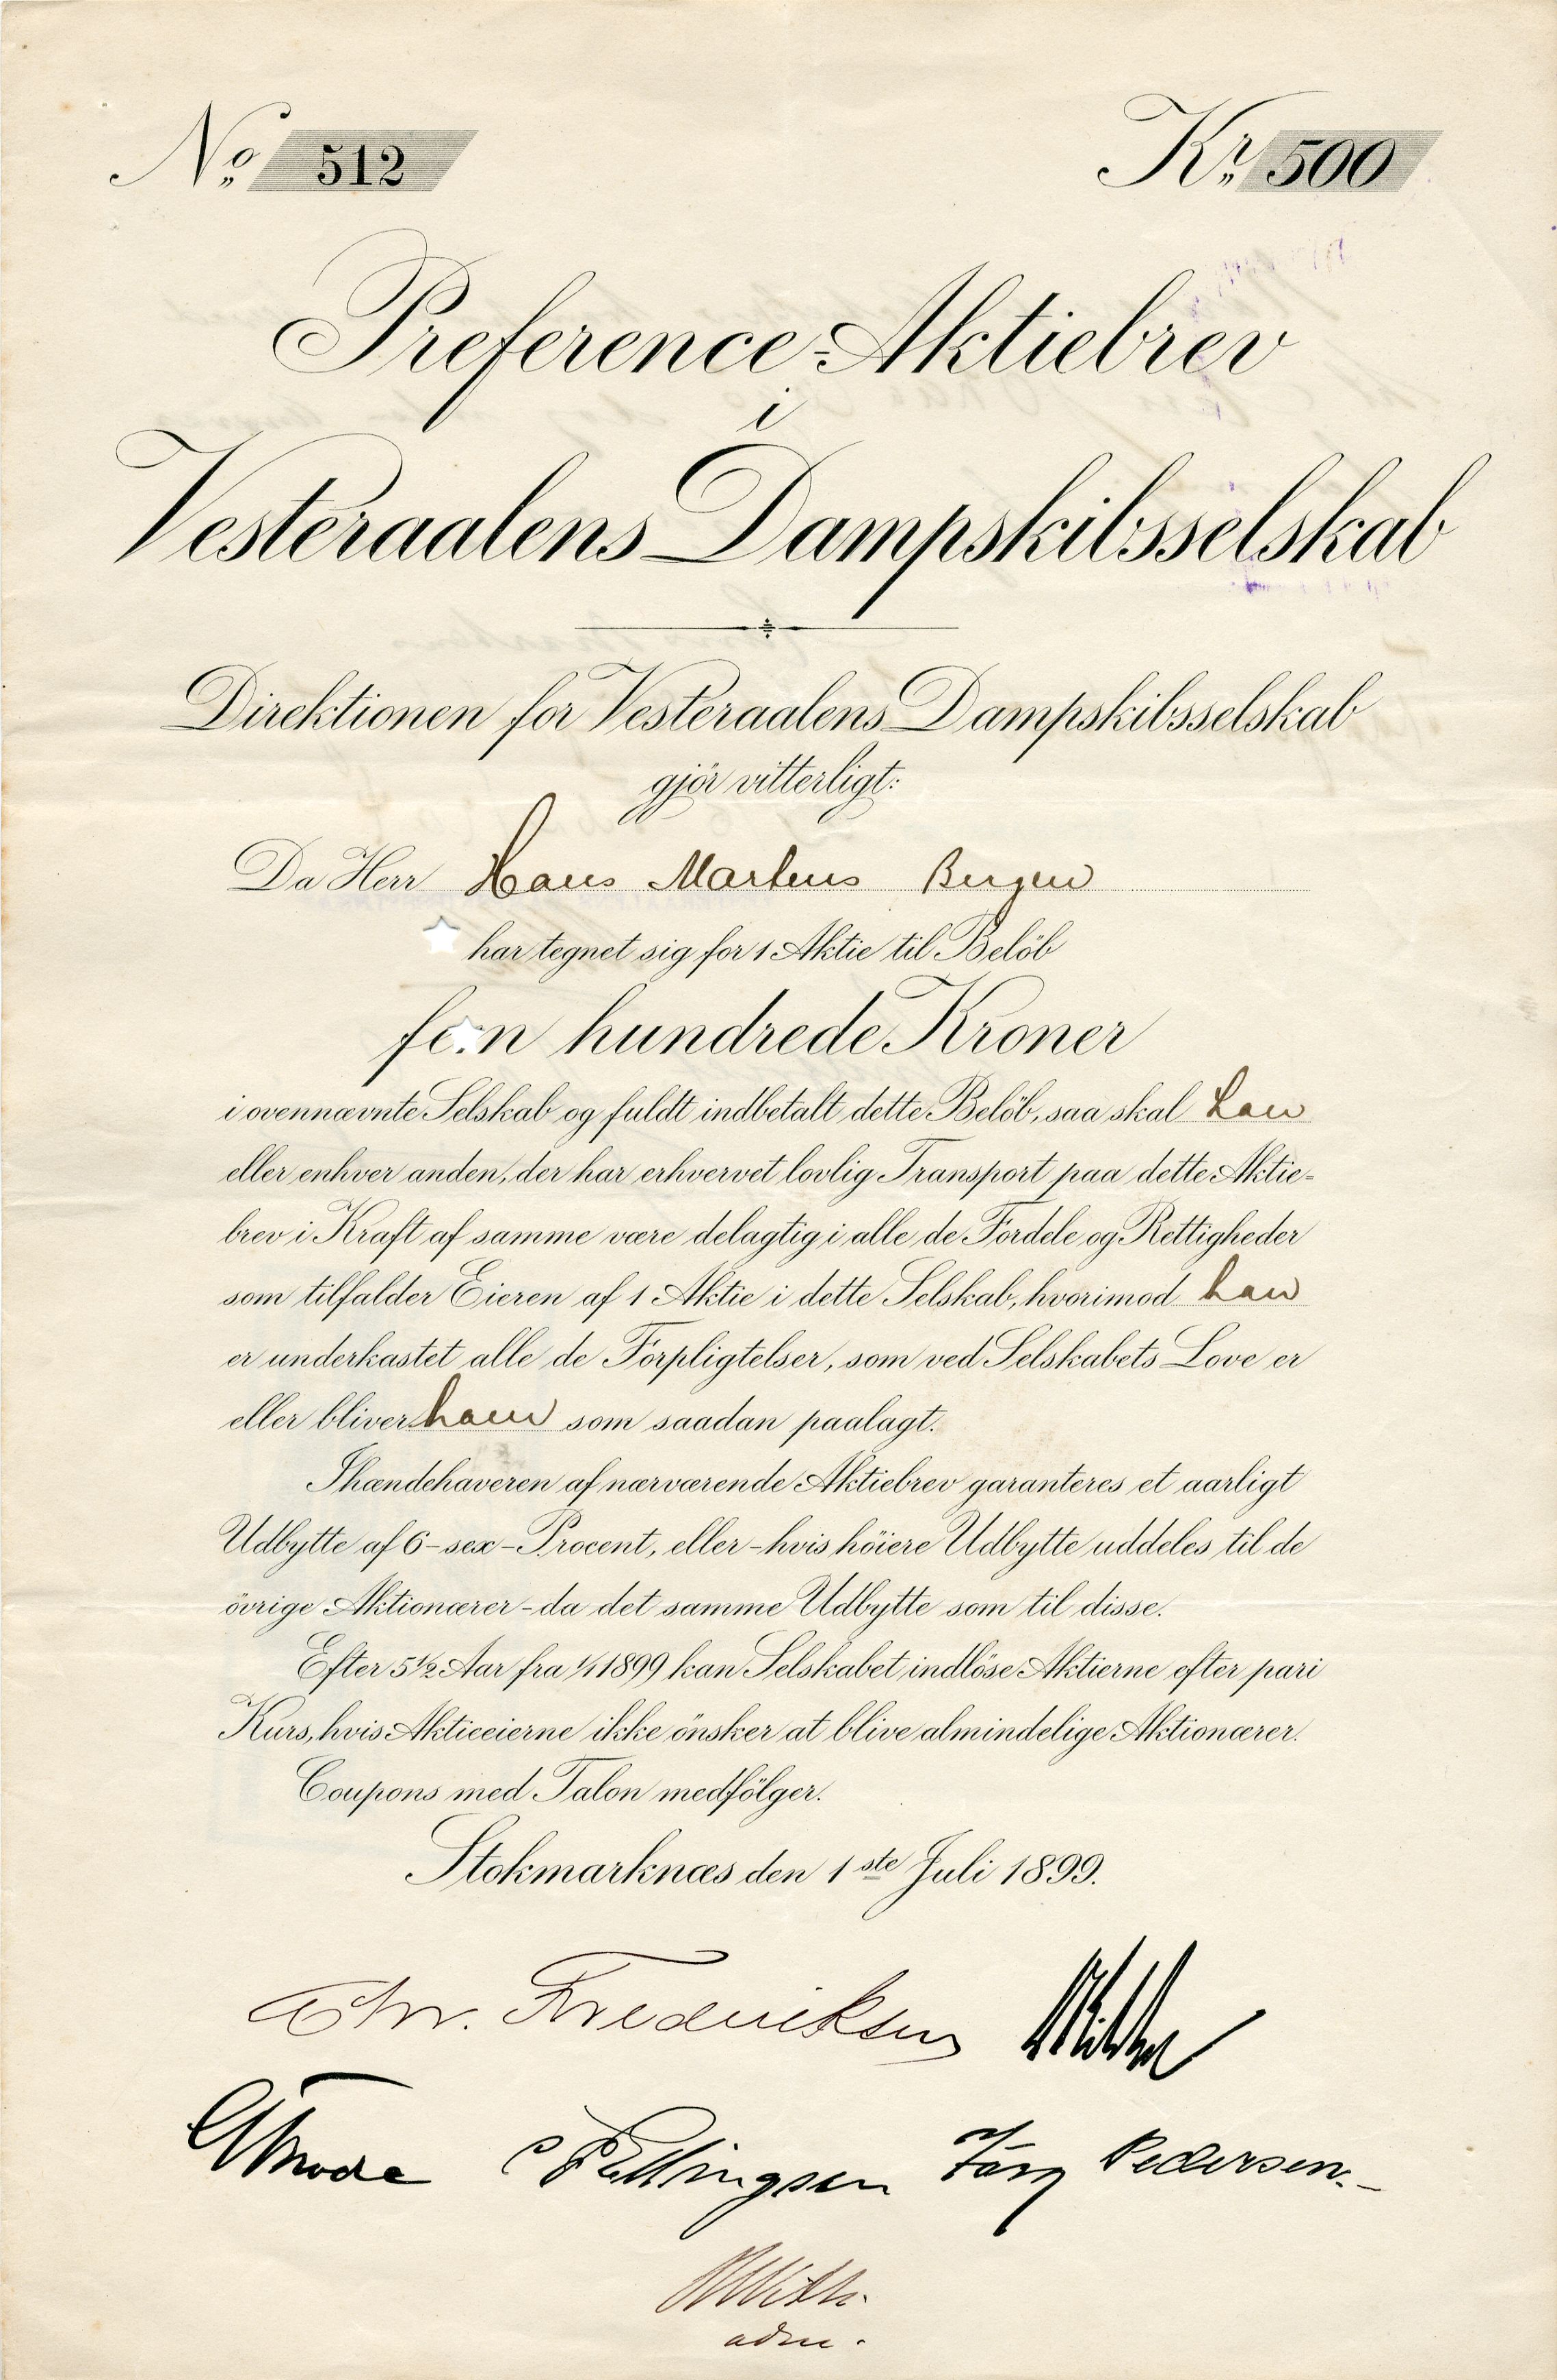 No 512
Kr. 500
Preference-Aktiebrev
i
Vesteraalens Dampskibsselskab
Direktionen for Vesteraalens Dampskibsselskab
gjör vitterligt:
Da Herr Hans Martens Bergen
har tegnet sig for 1 Aktie til Belöb
fem hundrede Kroner
i ovennævnte Selskab og fuldt indbetalt dette Belöb, saa skal han
eller enhver anden, der har erhvervet lovlig Transport paa dette Aktie-
brev i Kraft af samme være delagtig i alle de Fordele og Rettigheder
som tilfalder Eieren af 1 Aktie i dette Selskab, hvorimod han
er underkastet alle de Forpligtelser, som ved Selskabets Love er
eller bliver ham som saadan paalagt.
Ihændehaveren af nærværende Aktiebrev garanteres et aarligt
Udbytte af 6-sex-Procent, eller-hvis höiere Udbytte uddeles til de
övrige Aktionærer-da det samme Udbytte som til disse.
Efter 5½ Aar fra 1/1 1899 kan Selskabet indlöse Aktierne efter pari
Kurs, hvis Aktieeierne ikke önsker at blive almindelige Aktionærer.
Coupons med Talon medfölger.
Stokmarknæs den 1ste Juli 1899.
Chr. Frederiksen
Ellingsen Jörg Pedersen.
RWith.
adm.